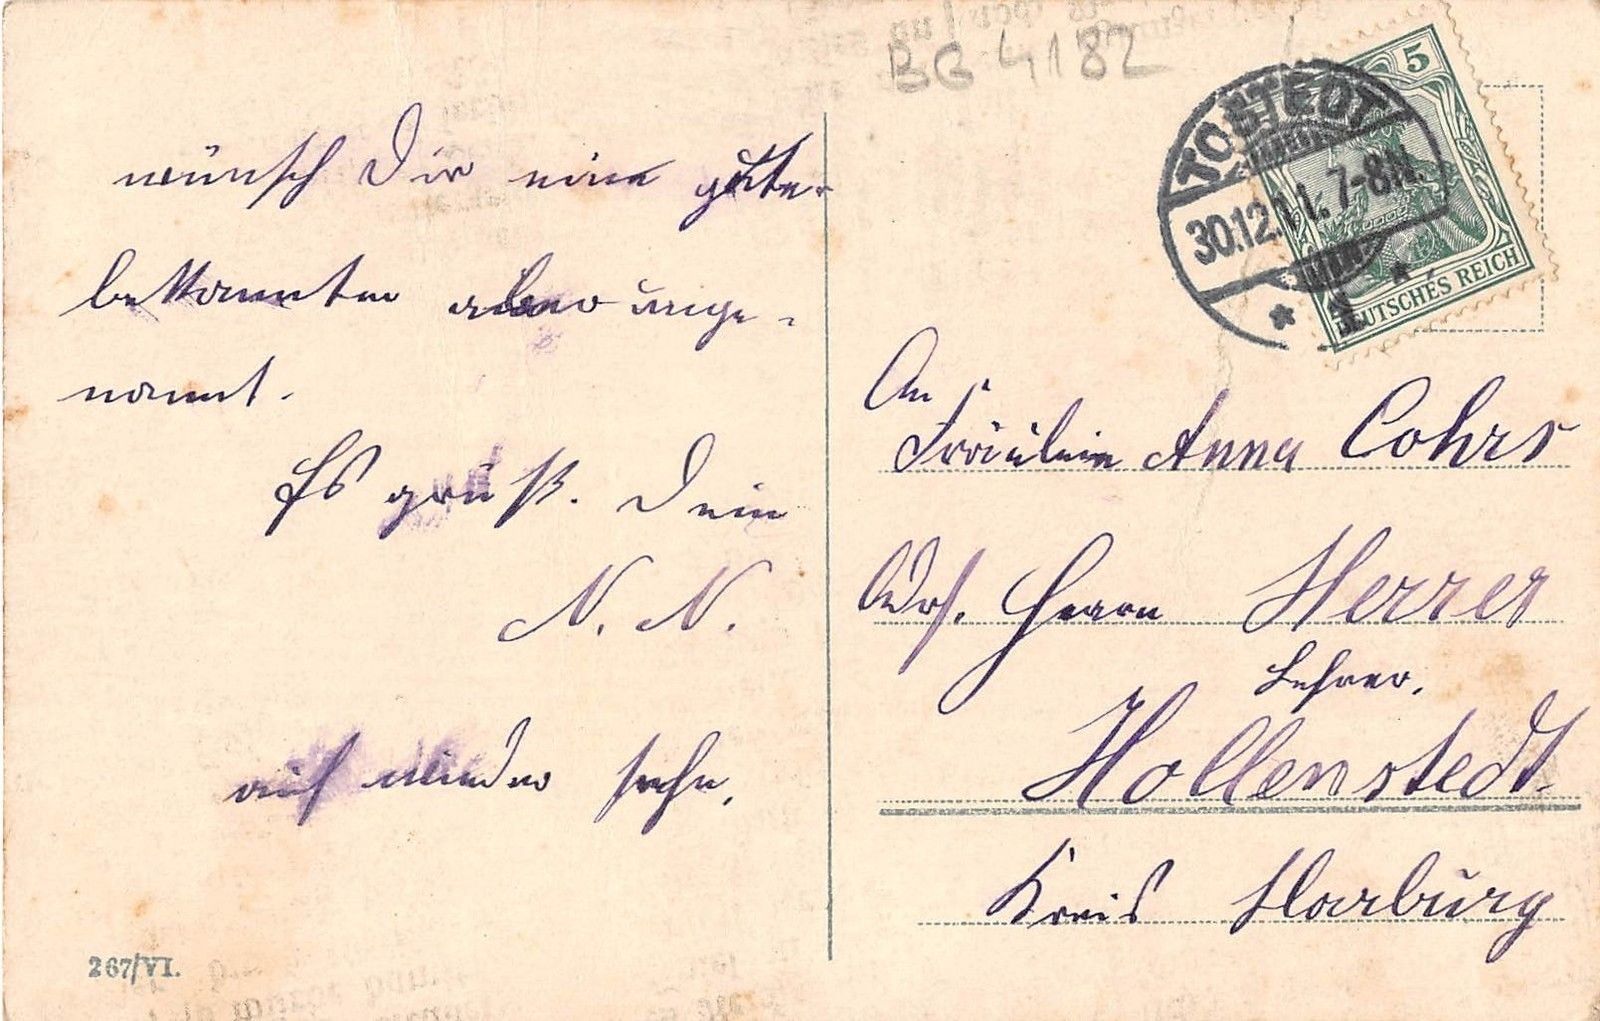 BG 4182
TOSTEDT
30.12.11. 7-8N.
5
DEUTSCHES REICH
wünsch Dir eine gute
bekannten aber unge-
nannt.
Es grüß. Dein
N. N.
auf wieder sehn,
An
Fräulein Anna Cohrs
Adr. Herrn Herrer
Lehrer.
Hollenstedt.
Kreis Harburg
267/VI.